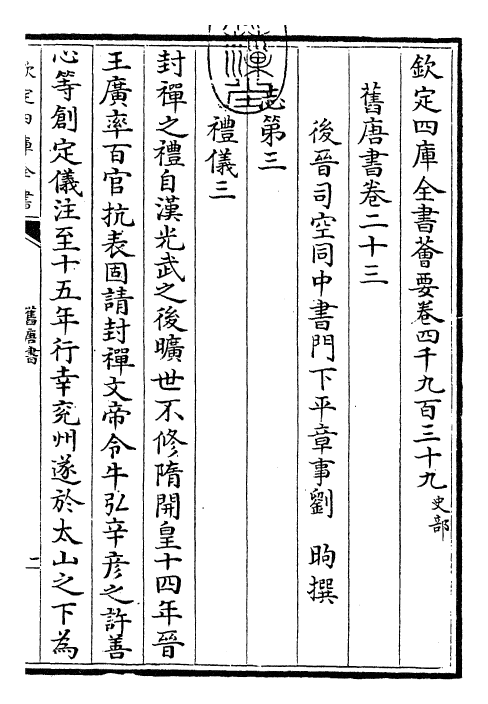 欽定四庫全書薈要卷四千九百三十九 史部
舊唐書卷二十三
後晉司空同中書門下平章事劉 昫撰
志第三
禮儀三
封禪之禮自漢光武之後曠世不修隋開皇十四年晉
王廣率百官抗表固請封禪文帝令牛弘辛彦之許善
心等創定儀注至十五年行幸兖州遂於太山之下為
欽定四庫全書
舊唐書